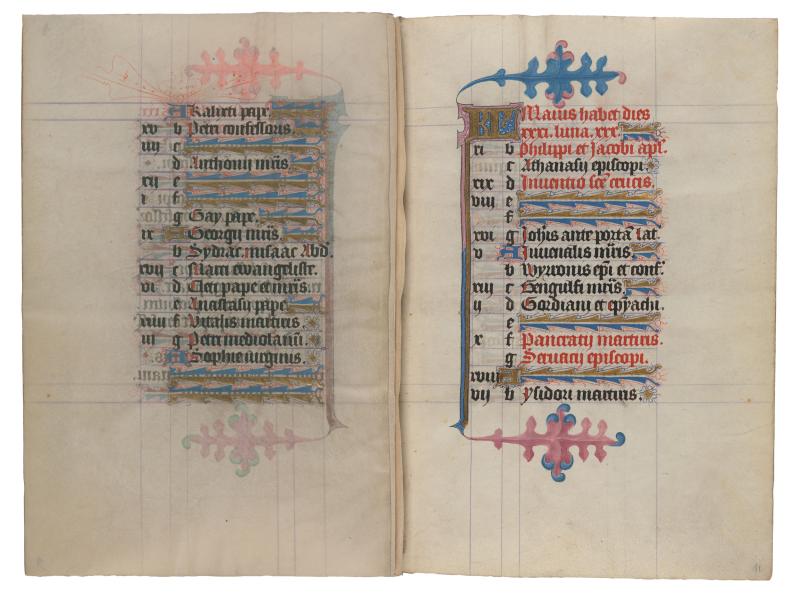 A Kalixti pape.
xv b Petri confessoris.
iiij c
d Anthonij mris.
xij e
i f
g Gay pape.
ix A Georgij mris.
b Sydrac. misaac Abd.
xvij c Marci ewangeliste.
vi d Cleti pape et mris.
e Anastasij pape
xiiij f Vitalis martiris.
iij g Petri mediolanen.
A Sophie virginis.
KL Maius habet dies
xxxi. luna. xxx.
xi b Philippi et Jacobi apl.
c Athanasij episcopi.
xix d Inventio sce crucis.
viij e
f
xvi g Johis ante porta lat.
v A Juvenalis mris.
b Wyronis epi et conf.
xiij c Gengulfi mris.
ij d Gordiani et epyachi.
e
x f Pancratij martiris.
g Servacij episcopi.
xviij A
vij b Ysidori martiris.
11